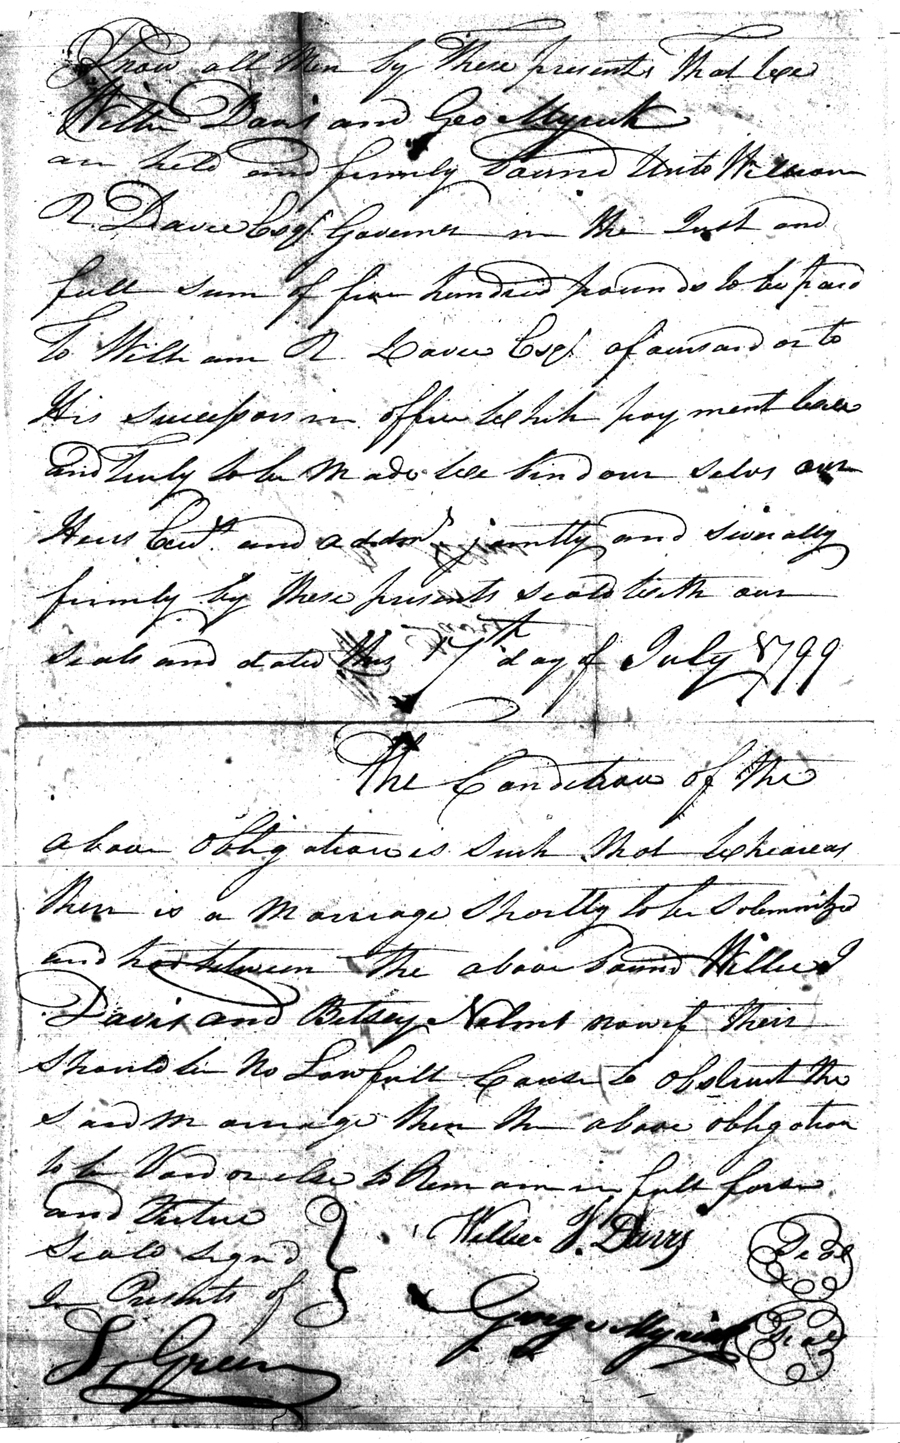 Know all Men by These presents That we
Willie Davis and Geo Myrick
are held and firmly Bound Unto William
R Davie Esqr. Governor in the Just and
full sum of five hundred pounds to be paid
To William R. Davie Esqr. afoursaid or to
His successors in office Which payment well
and Truly to be Made we bind our selvs our
Heirs Exrs. and addmrs. jointly and siverally
firmly by these presents seald with our
seals and dated this 17th day of July 1799
The Condition of the
above obligation is such that whereas
there is a Marriage Shortly to be Solemnized
and had between the above Bound Willie J
Davis and Betsey now if their
should be No Lawfull Cause to obstruct the
said Marriage then the above obligation
to be Void or else to Remain in full force
and Vertue
Seald signd
In Presents of
Willie J. Davis Seal
George Myrick Seal
L Green